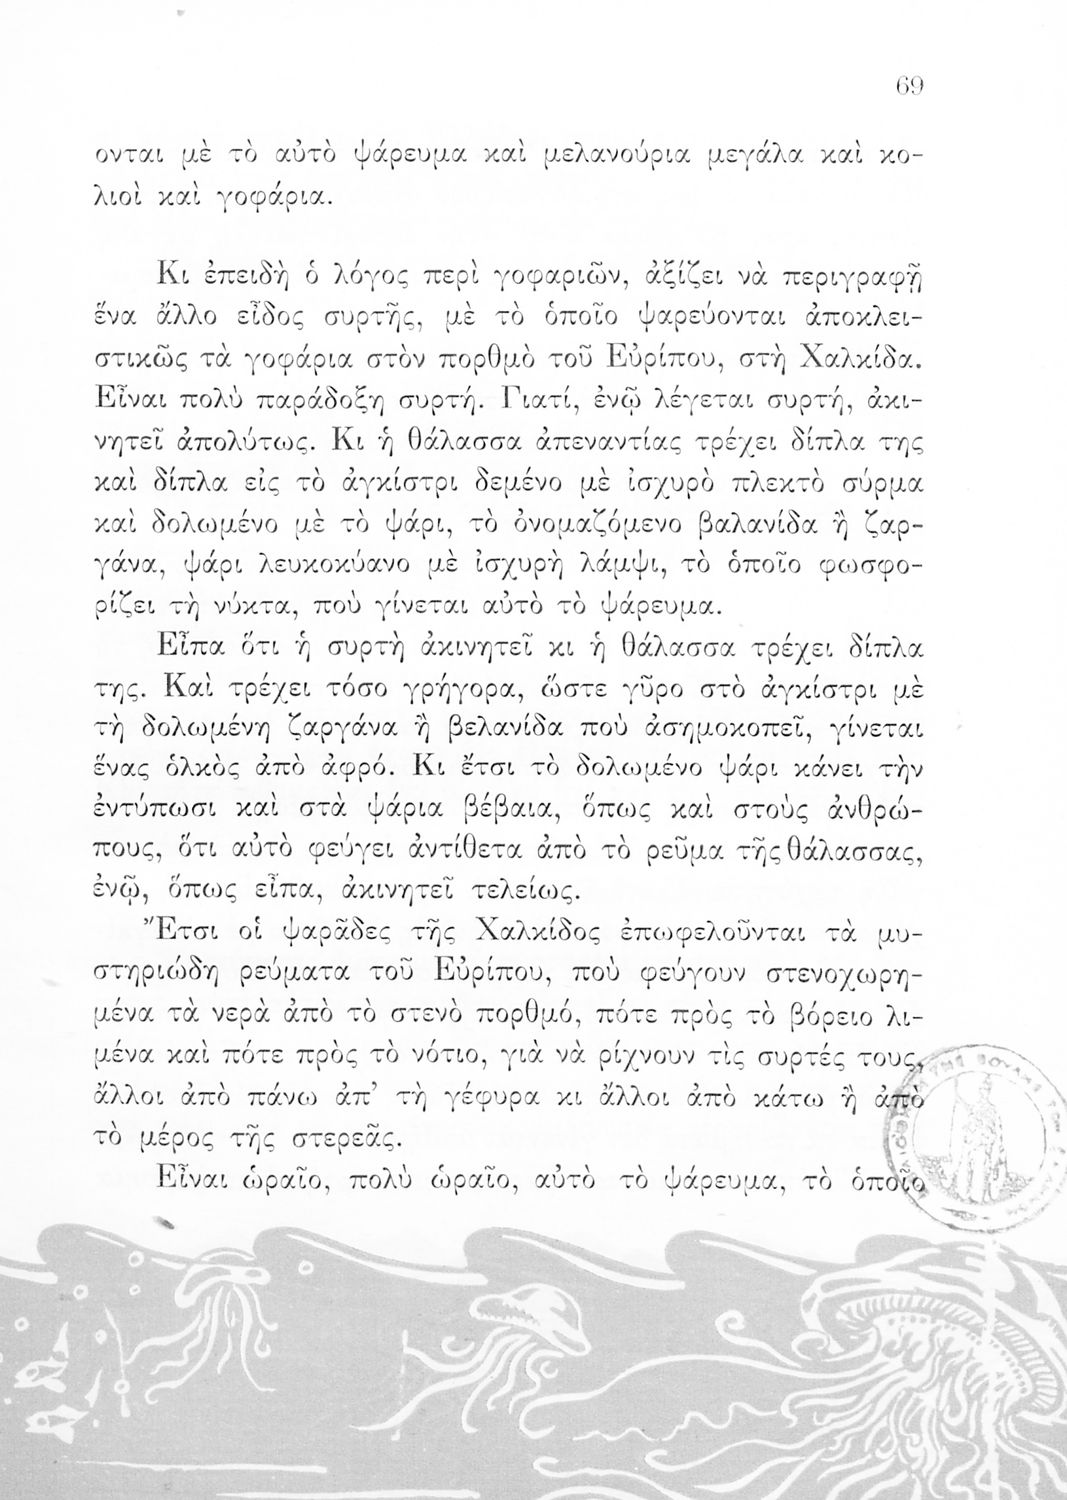 69
ονται μὲ τὸ αὐτὸ ψάρευμα καὶ μελανούρια μεγάλα καὶ κο-
λιοὶ καὶ γοφάρια.
Κι ἐπειδὴ ὁ λόγος περὶ γοφαριῶν, ἀξίζει νὰ περιγραφῇ
ἕνα ἄλλο εἶδος συρτῆς, μὲ τὸ ὁποῖο ψαρεύονται ἀποκλει-
στικῶς τὰ γοφάρια στὸν πορθμὸ τοῦ Εὐρίπου, στὴ Χαλκίδα.
Εἶναι πολὺ παράδοξη συρτή. Γιατί, ἐνῷ λέγεται συρτή, ἀκι-
νητεῖ ἀπολύτως. Κι ἡ θάλασσα ἀπεναντίας τρέχει δίπλα της
καὶ δίπλα εἰς τὸ ἀγκίστρι δεμένο μὲ ἰσχυρὸ πλεκτὸ σύρμα
καὶ δολωμένο μὲ τὸ ψάρι, τὸ ὀνομαζόμενο βαλανίδα ἢ ζαρ-
γάνα, ψάρι λευκοκύανο μὲ ἰσχυρὴ λάμψι, τὸ ὁποῖο φωσφο-
ρίζει τὴ νύκτα, ποὺ γίνεται αὐτὸ τὸ ψάρευμα.
Εἶπα ὅτι ἡ συρτὴ ἀκινητεῖ κι ἡ θάλασσα τρέχει δίπλα
της. Καὶ τρέχει τόσο γρήγορα, ὥστε γῦρο στὸ ἀγκίστρι μὲ
τὴ δολωμένη ζαργάνα ἢ βελανίδα ποὺ ἀσημοκοπεῖ, γίνεται
ἕνας ὁλκὸς ἀπὸ ἀφρό. Κι ἔτσι τὸ δολωμένο ψάρι κάνει τὴν
ἐντύπωσι καὶ στὰ ψάρια βέβαια, ὅπως καὶ στοὺς ἀνθρώ-
πους, ὅτι αὐτὸ φεύγει ἀντίθετα ἀπὸ τὸ ρεῦμα τῆς θάλασσας,
ἐνῷ, ὅπως εἶπα, ἀκινητεῖ τελείως.
Ἔτσι οἱ ψαρᾶδες τῆς Χαλκίδος ἐπωφελοῦνται τὰ μυ-
στηριώδη ρεύματα τοῦ Εὐρίπου, ποὺ φεύγουν στενοχωρη-
μένα τὰ νερὰ ἀπὸ τὸ στενὸ πορθμό, πότε πρὸς τὸ βόρειο λι-
μένα καὶ πότε πρὸς τὸ νότιο, γιὰ νὰ ρίχνουν τὶς συρτές τους,
ἄλλοι ἀπὸ πάνω ἀπ’ τὴ γέφυρα κι ἄλλοι ἀπὸ κάτω ἢ ἀπὸ
τὸ μέρος τῆς στερεᾶς.
Εἶναι ὡραῖο, πολὺ ὡραῖο, αὐτὸ τὸ ψάρευμα, τὸ ὁποῖο
ΤΗΣ ΒΟΥΛΗΣ ΤΩΝ